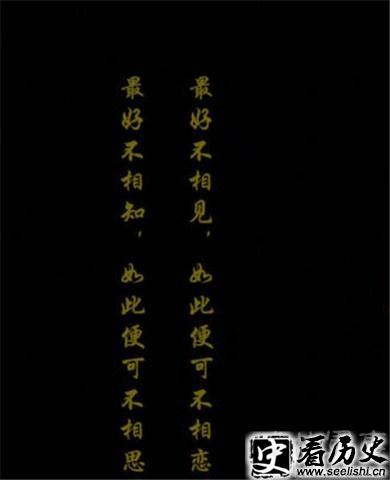 最好不相见，如此便可不相恋
最好不相知，如此便可不相思
史 看历史
www.seelishi.cn